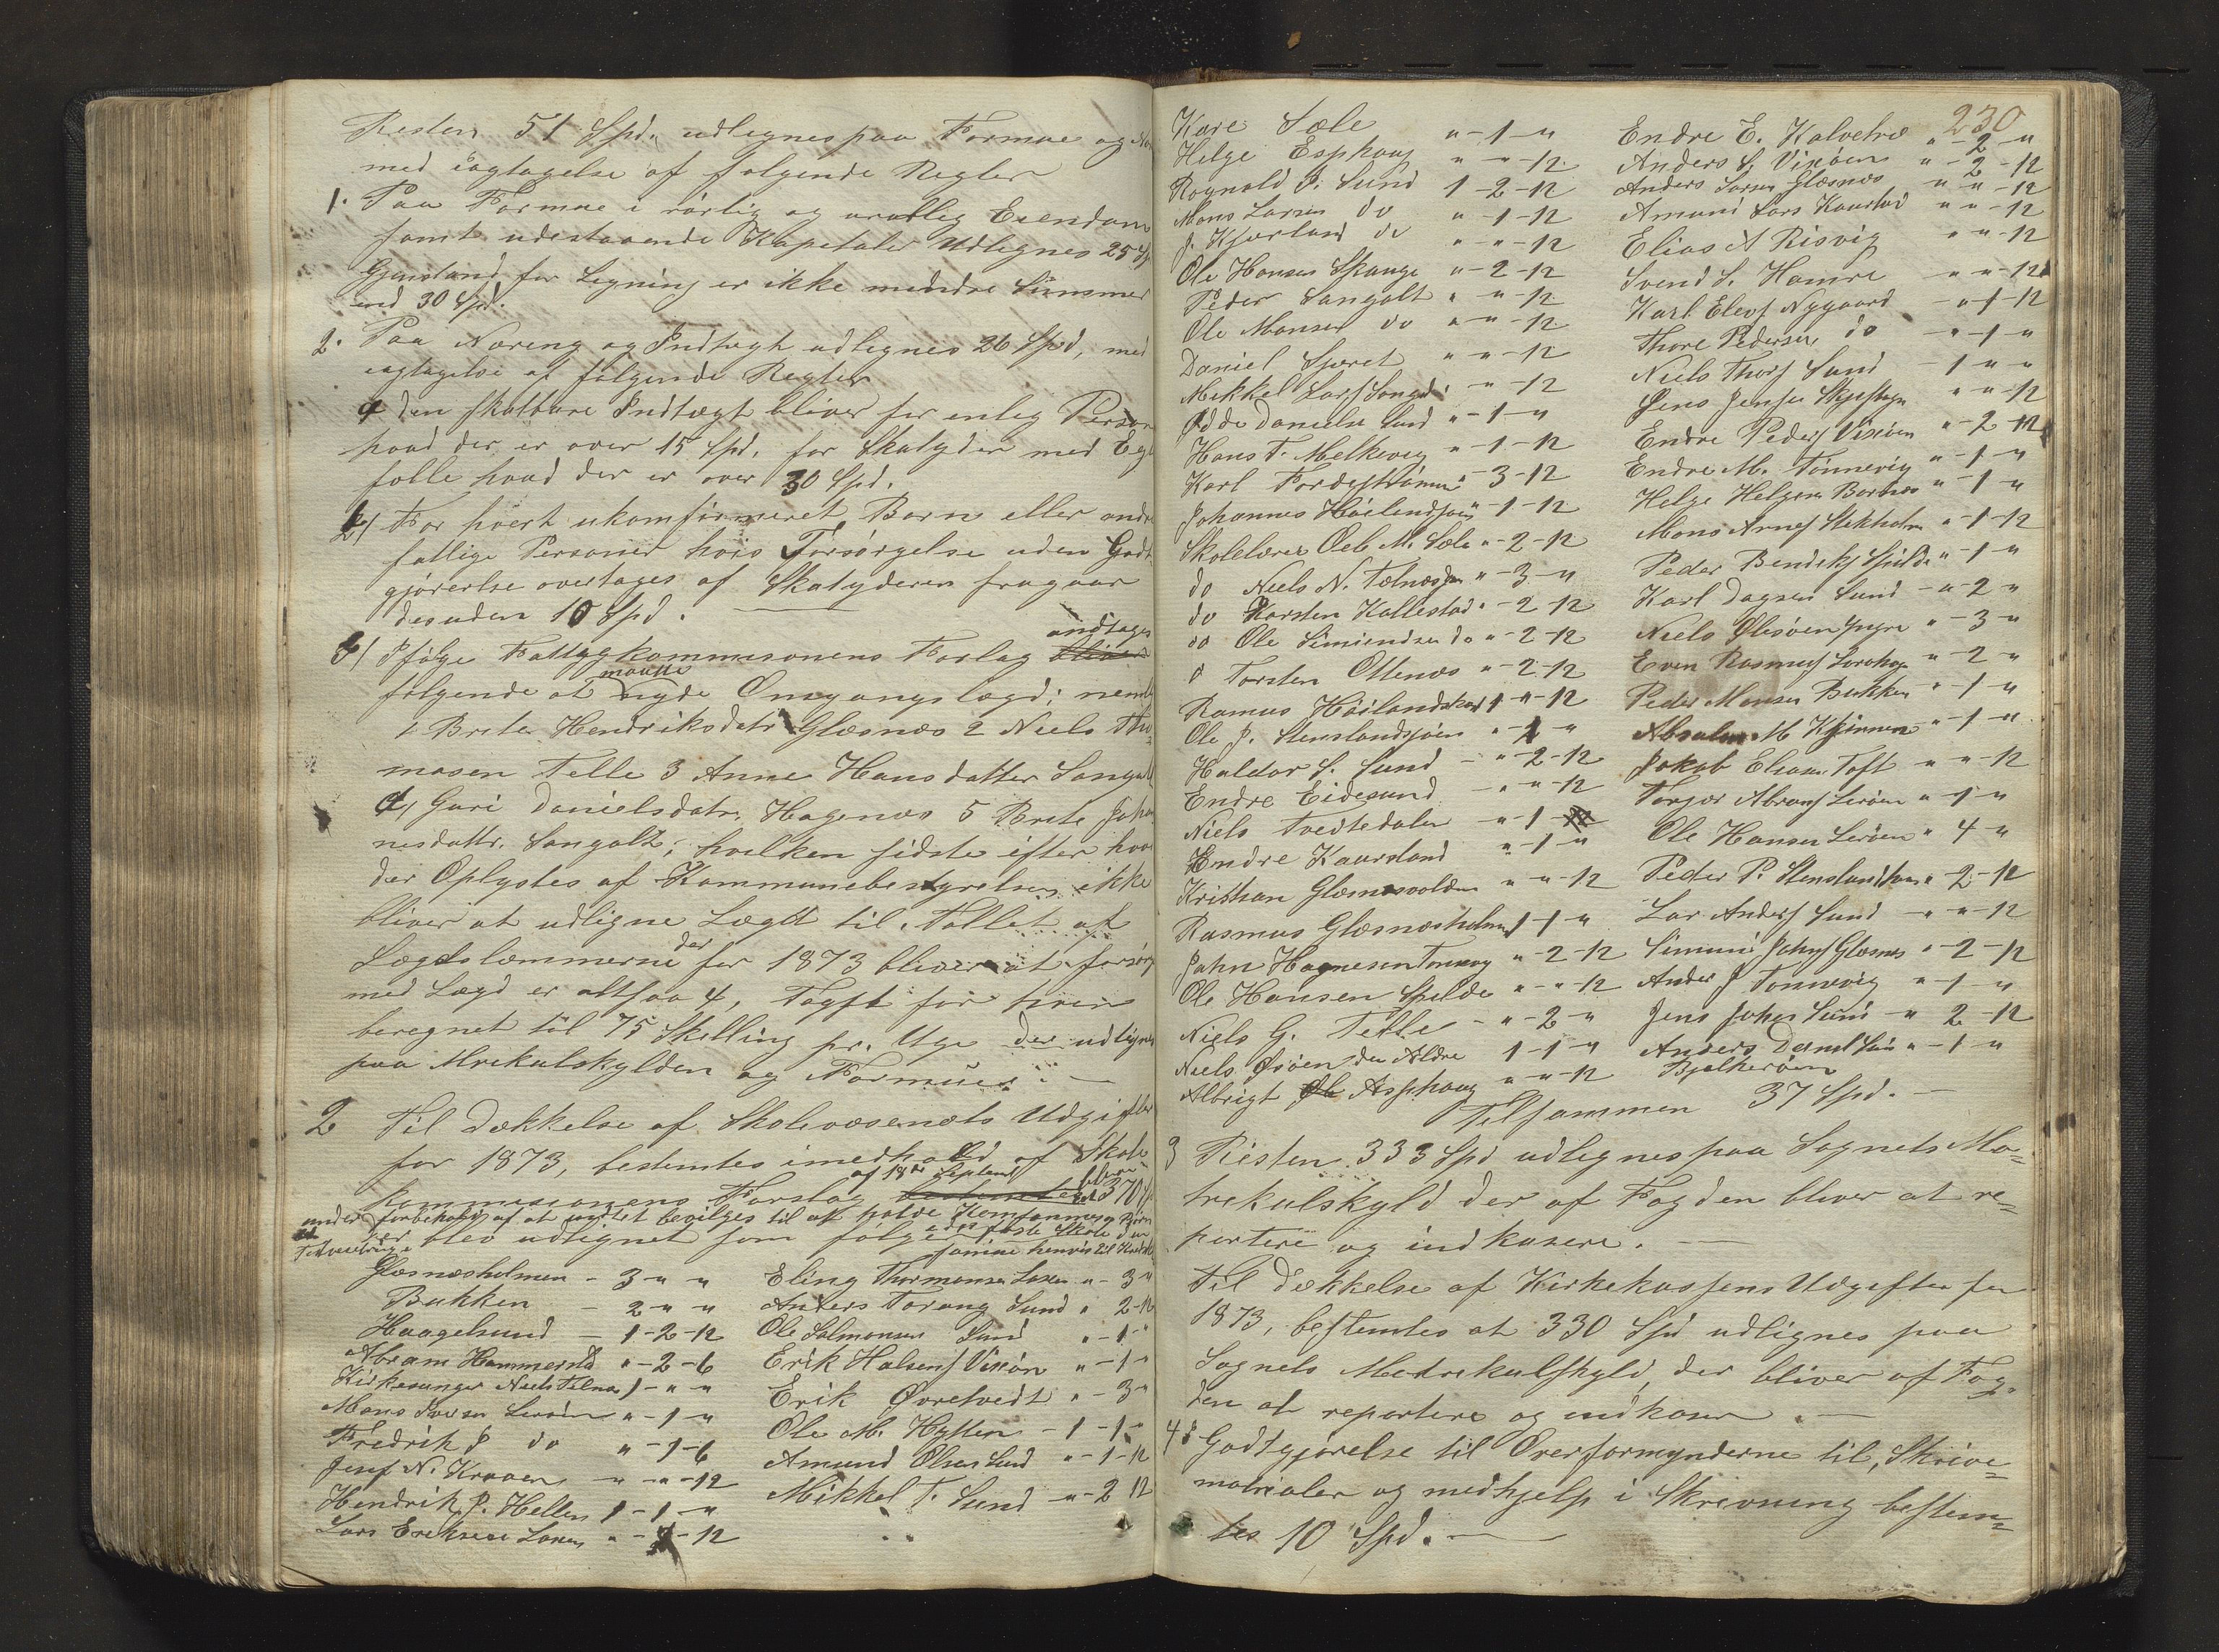 Resten 51 Spd. udlegnes paa Formue og
med iagtagelse af følgende Regler
1. Paa Formue i rørlig og urørlig Eiendom
samt udestaaende Kapetaler Udlegnes 25
Gjenstand for Legning er ikke mendre Summer
end 30 Spd.
2. Paa Næring og Indtægt udlignes 26 Spd, med
iagtagelse af følgende Regler
a den skatbare Indtægt bliver for enlig Person
hvad der er over 15 Spd. for Skatyder med Egte
fælle hvad der er over 30 Spd.
b/ For hvert ukomfirmeret Barn eller andre
fattige Personer hvis Forsørgelse uden Godt
gjørerlse overtages af Skatyderen fragaar
desuden 10 Spd.
3/ Ifølge Fattygkommesonens Forlag bliver andtages
følgende at maatte nyde Omgangslægd; nemlig
1 Brita Hendriksdatr Glæsnæs 2 Niels Tho
masen Telle 3 Anne Hansdatter Sangolt
4/ Guri Danielsdatr. Hagenæs 5 Brite Johan
nesdattr. Sangolt; hvilken sidste efter hvad
der Oplystes af Kommunebestyrelsen ikke
bliver at udligne Lægd til. Tallet af
Lægdslemmerne der for 1873 bliver at forsørg
med Lægd er altsaa 4, Tagst for hver
beregnet til 75 Skelling pr. Uge der udlignes
paa Mrekulskylden og Formuen. —
2 Til Dækkelse af Skolevæsenets Udgifter
for 1873, bestemtes imedhold af Skole
kommesionens Forslag af 18de Septem bestemtes 370
under forbehold af at andtet bevilges til at holde
blev udlignet som følger
Glæsnæsholmen - 3 - " "
Bukken - 2 - " "
Haagelsund - 1 - 2 - 12
Abram Hammerslă " - 2 - 6
Kirkesanger Niels Telnæs 1 - " "
Mons Lerøen " - 1 - "
Fredrik J do " - 1 - 6
Josef N. Kraaen " - " - 12
Hendrik J. Hellen 1 - 1 - "
Lars Eriksen " - - 12
Eling Thormonsen " - 3 "
Anders Forang Sund " 2 - 12
Ole Salmonsen Sund " - 1 - "
Erik Halsens Vixøn " - 1 - "
Erik Øvretvedt " - 3 "
Ole M. Hytten - 1 - 1 - "
Amund Olsen Sund " - 1 - 12
Mikkel T. Sund " - 2 12
230
Kare Sæle " - 1 - "
Helge Esphoug " - " - 12
Rognald J. Sund 1 - 2 - 12
Mons Larsen do " - 1 - 12
J. Kjørland do " - " - 12
Ole Hansen Skauge " - 2 - 12
Peder Sangolt " - " - 12
Ole Monsen do " - " - 12
Daniel Spæret " - " - 12
Mekkel Lars Sangolt " - 12
Odde Danielsn Sund " - 1 - "
Hans T. Melkevig " - 1 - 12
Karl Fordestrømen " - 3 - 12
Johannes Høilandsøen " - 1 - 12
Skolelærer Oeb M. Sæle " - 2 - 12
do Niels N. Telnæs " - 3 - "
do Karsten Kallestad " - 2 - 12
do Ole Simiendsen do " - 2 - 12
d Torsten Ottenæs " - 2 - 12
Ramus Høilandskar 1 - " - 12
Ole J. Stenslandsjøen " - 1 - "
Haldor S. Sund - " - 2 - 12
Endre Eidesund - " - " - 12
Niels Tvedtedalen " - 1 -
Endre Kaursland " - 1 - "
Kristhan Glæsnæsvolden " - " - 12
Rasmus Glæsnæsholmen 1 - 1 - "
John Hagnesen " - 2 - 12
Ole Hansen Spilde " - " - 12
Niels G. Telle - " - 2 - "
Niels Øriøen den Aldre 1 - 1 - "
Albrigt Ole Asphaug " - " - 12
Endre E. Kalvetræ " - 2 - "
Anders S. Vixøen " - 2 - 12
Anders Larsen Glæsnæs " - " - 12
Amund Lars Kaursld " - " - 12
Elias A Risvig " - " - 12
Svend S. Hamre " - " - 12
Karl Elevs Nygaard - " - 1 - 12
Thore Pedersen do - " - 1 - "
Niels Thors Sund - 1 - " "
Jens Jensen " - " - 12
Endre Peders Vixøen " - 2 - 12
Endre M. Tønnevig " - 1 - "
Helge Helgesn Bornæs " - 1 - "
Mons Arnes Stekholm " - 1 - 12
Peder Bendiks Spilde " - 1 - "
Karl Dagsen Sund - " - 2 - "
Niels Øriøen Yngre " - 3 - "
Even Rasmus " - 2 - "
Peder Monsen Bukken " - 1 - "
Absalon M Kjønnen " - 1 - "
Jakob Eliasen Toft " - " - 12
Torger Abrams Lerøen " - 1 - "
Ole Hansen Lerøen " 4 - "
Peder P. Stensland " - 2 - 12
Lar Anders Sund - " - " - 12
Simuni Johns Glæsnæs " - 2 - 12
Ander J Tonnevig " - 1 - "
Jens Johs Sund - " 2 - 12
Anders Daniel " - 1 - "
Bjelkerøen
Tilsammen 37 Spd. —
3 Resten 333 Spd udlegnes paa Sognets Ma=
trekulskyld der af Fogden bliver at re=
partere og indkasere. —
Til Dækkelse af Kirkekassens Udgifter for
1873, bestemtes at 330 Spd udlignes paa
Sognets Matrekulskyld, der bliver af Fog=
den at repartere og indkaser. —
4 Godtgjørelse til Overformynderne til, Skrive=
matrialer og medhjelp i Skrevning bestem=
tes 10 Spd. —